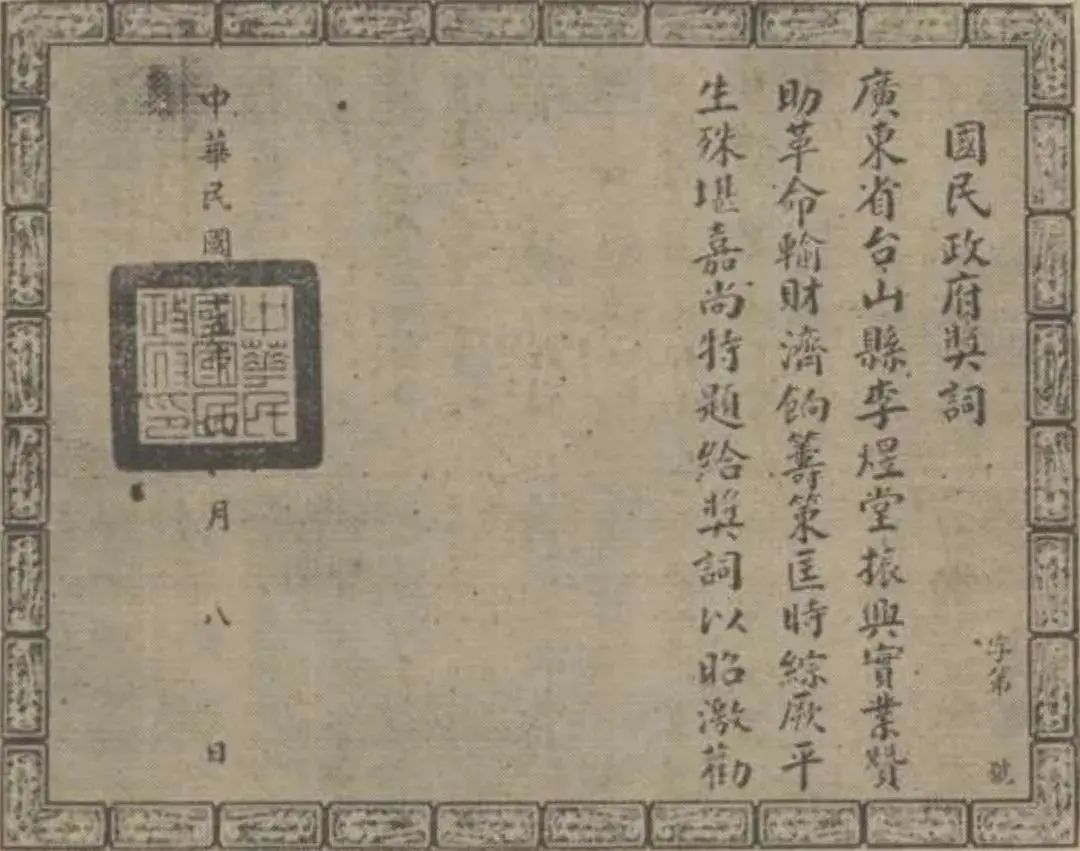 國民政府奬詞
字第 號
廣東省台山縣李煜堂振興實業贊
助革命輸財濟餉籌策匡時綜厥平
生殊堪嘉尚特題給奬詞以昭激勸
中華民國 月八日
中華民國國民政府印